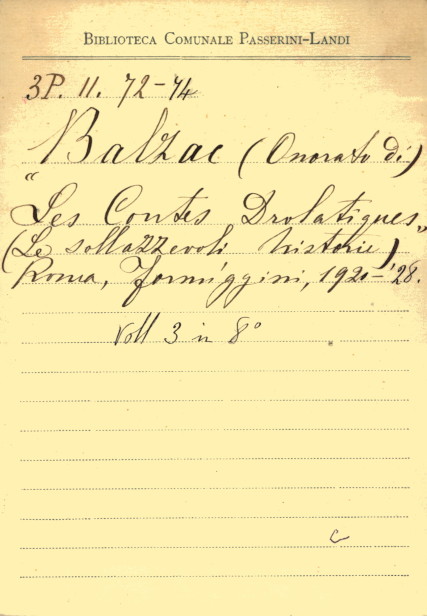 BIBLIOTECA COMUNALE PASSERINI-LANDI
3P. 11. 72-74
Balzac (Onorato di)
"Les Contes Drolatiques"
(Le sollazzevoli historie)
Roma, Formiggini, 1920-'28.
Voll 3 in 8°
c